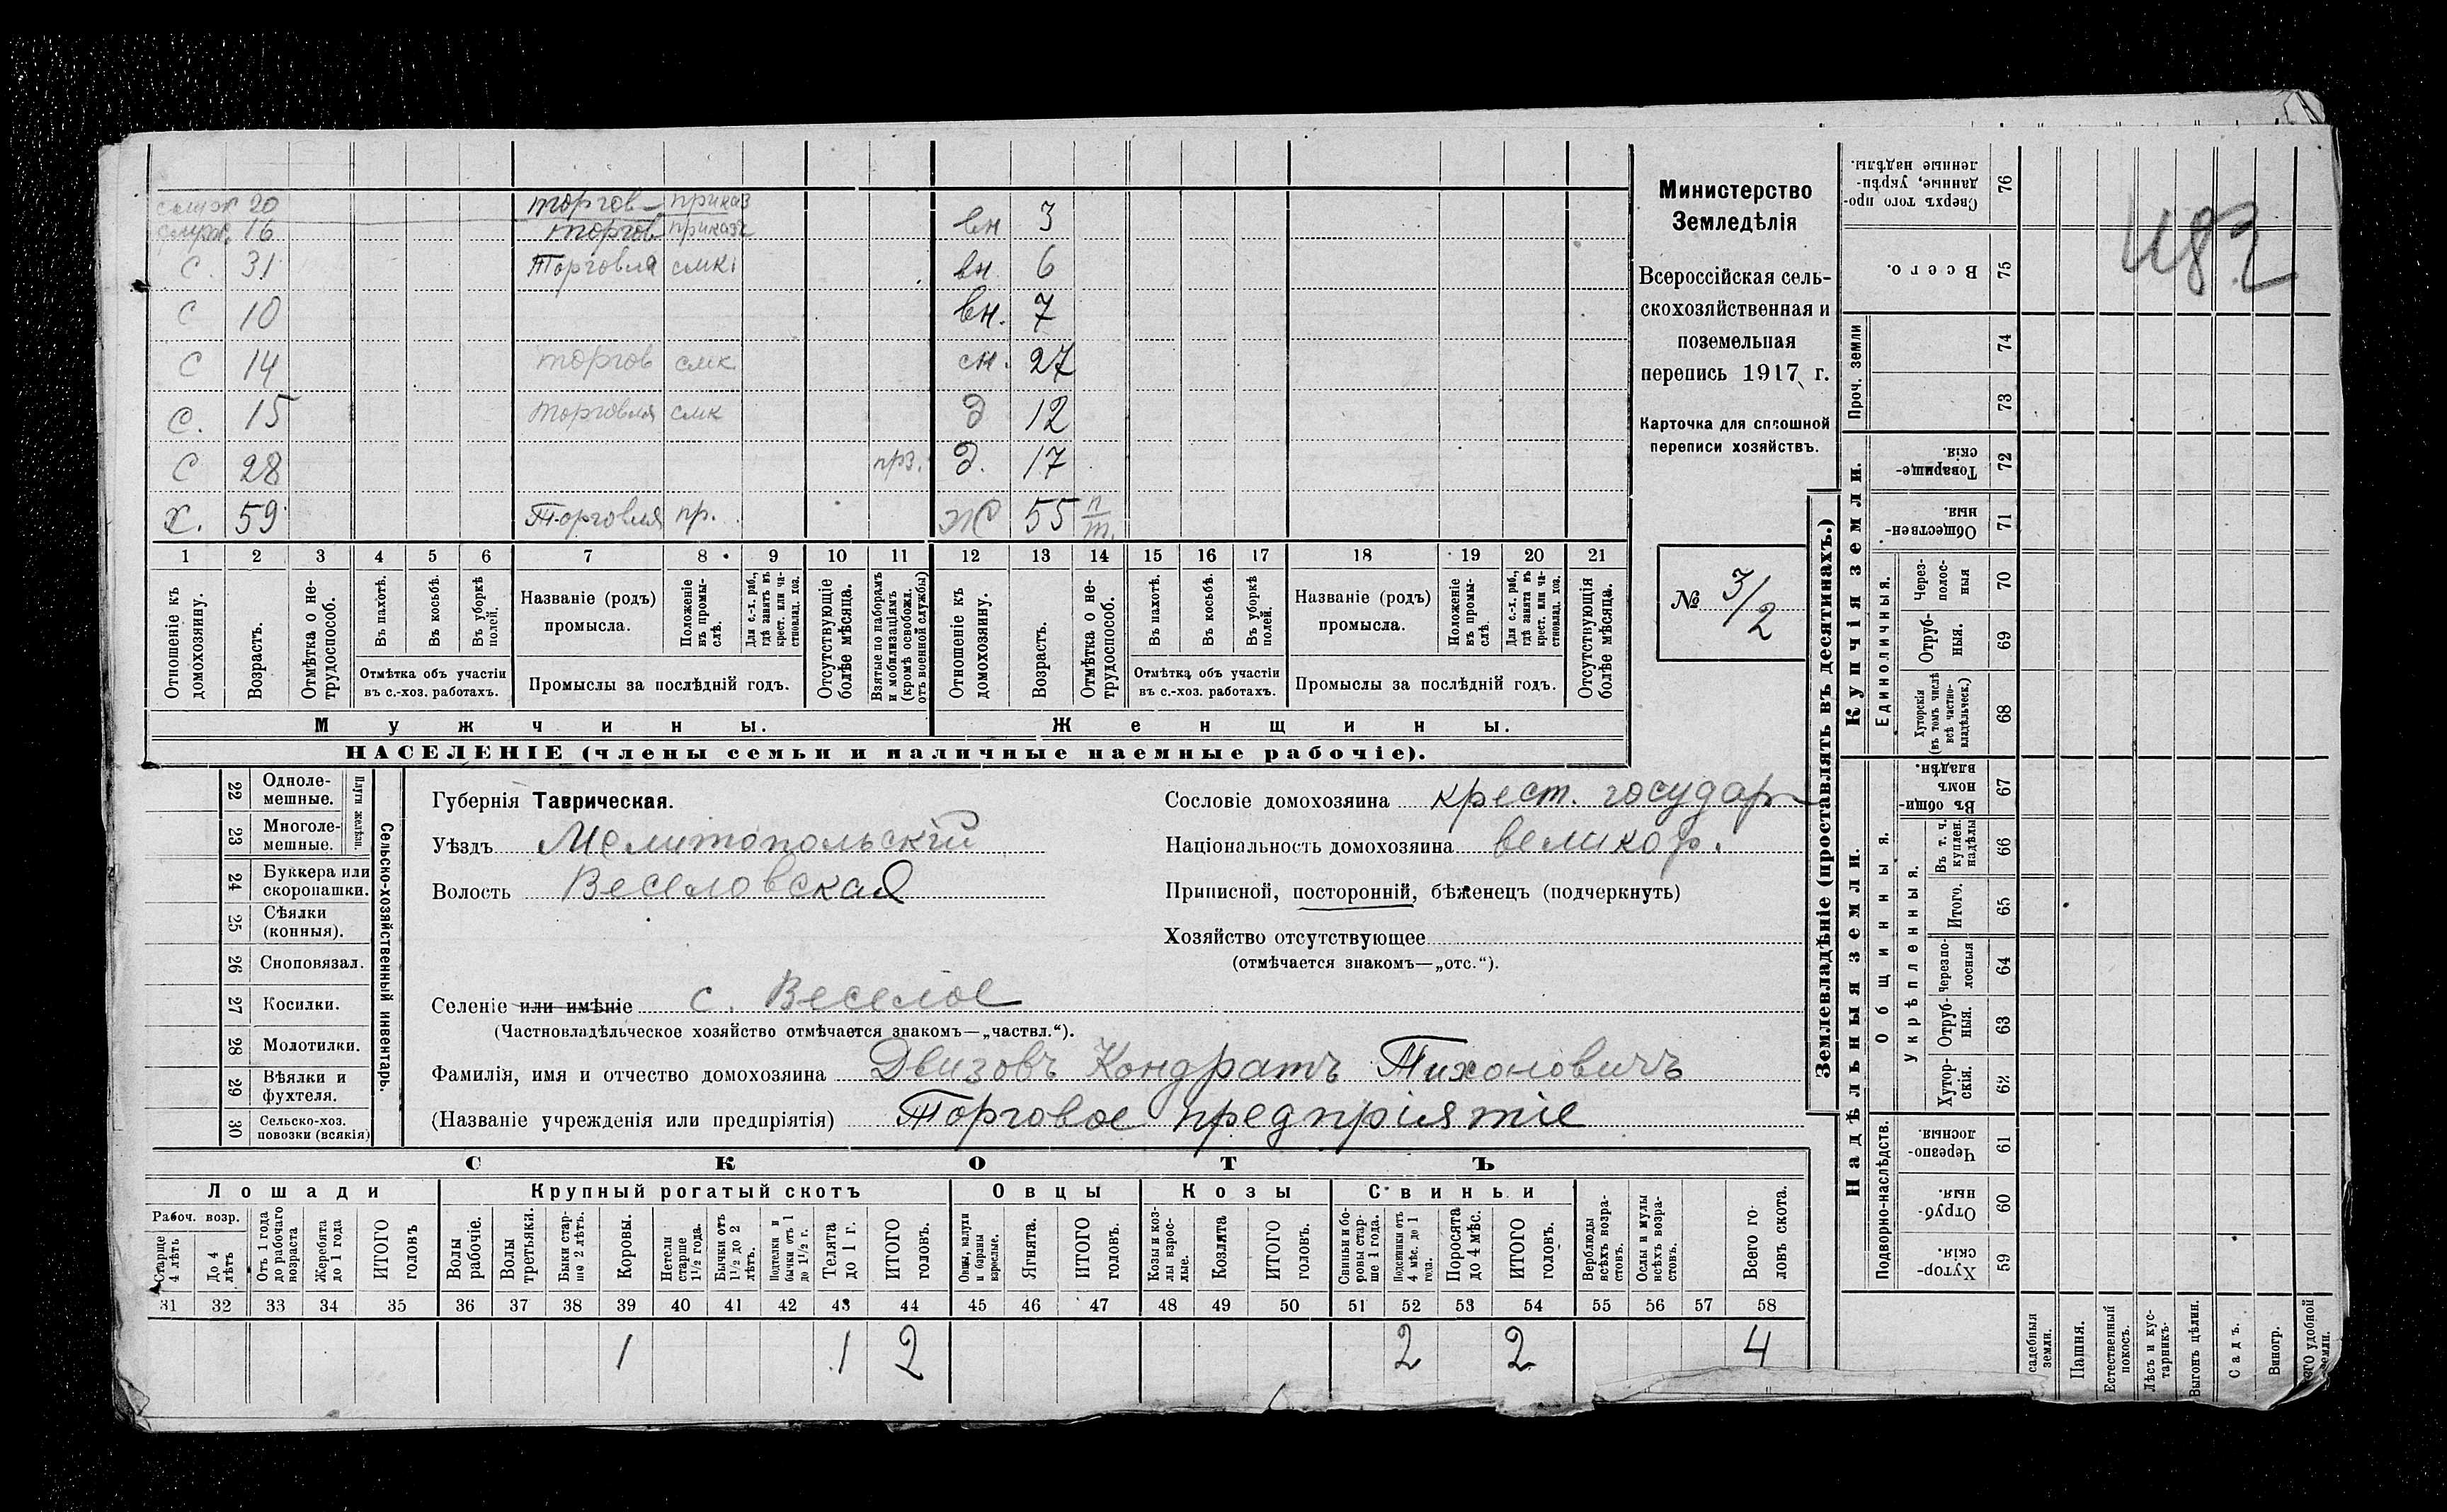 служ 20 торгов – приказ вн 3
служ. 16 торгов приказ
с. 31 Торговля смкі вн. 6
с 10 вн. 7
с 14 торгов смк сн. 27
с. 15 торговля смк д 12
с 28 прз. д. 17
х. 59 Торговля пр. ж 55 п/т.
1 2 3 4 5 6 7 8 9 10 11 12 13 14 15 16 17 18 19 20 21
Отношеніе къ домохозяину.
Возрастъ.
Отмѣтка о не-
трудоспособ.
Въ пахотѣ.
Въ косьбѣ.
Въ уборкѣ полей.
Отмѣтка объ участіи
въ с.-хоз. работахъ.
Названіе (родъ)
промысла.
Положеніе въ промы-
слѣ.
Для с.-х. раб.,
гдѣ занятъ въ
крест. или ча-
стновлад. хоз.
Промыслы за послѣдній годъ.
Отсутствующіе
болѣе мѣсяца.
Взятые по наборамъ
и мобилизаціямъ
(кромѣ освобожд.
отъ военной службы)
Отношеніе къ
домохозяину.
Возрастъ.
Отмѣтка о не-
трудоспособ.
Въ пахотѣ.
Въ косьбѣ.
Въ уборкѣ
полей.
Отмѣтка объ участіи
въ с.-хоз. работахъ.
Названіе (родъ)
промысла.
Положеніе
въ промы-
слѣ.
Для с.-х. раб.,
гдѣ занята въ
крест. или ча-
стновлад. хоз.
Промыслы за послѣдній годъ.
Отсутствующія
болѣе мѣсяца.
Мужчины.
Женщины.
НАСЕЛЕНІЕ (члены семьи и наличные наемные рабочіе).
Министерство
Земледѣлія
Всероссійская сель-
скохозяйственная и
поземельная
перепись 1917 г.
Карточка для сплошной
переписи хозяйствъ.
№ 3/2
22 Одноле-
мешные.
23 Многоле-
мешные.
Плуги желѣзн.
24 Буккера или
скоропашки.
25 Сѣялки
(конныя).
26 Сноповязал.
27 Косилки.
28 Молотилки.
29 Вѣялки и
фухтеля.
30 Сельско-хоз.
повозки (всякія)
Сельско-хозяйственный инвентарь.
Губернія Таврическая.
Уѣздъ Мелитопольскій
Волость Веселовская
Селеніе или имѣніе с. Веселое
(Частновладѣльческое хозяйство отмѣчается знакомъ—„частвл.“).
Фамилія, имя и отчество домохозяина Двизовъ Кондратъ Тихоновичъ
(Названіе учрежденія или предпріятія) Торговое предпріятіе
Сословіе домохозяина крест. государ
Національность домохозяина великор.
Приписной, посторонній, бѣженецъ (подчеркнуть)
Хозяйство отсутствующее
(отмѣчается знакомъ—„отс.“).
СКОТЪ
Лошади
Крупный рогатый скотъ
Овцы
Козы
Свиньи
Рабоч. возр.
Старше
4 лѣтъ
До 4
лѣтъ
Отъ 1 года
до рабочаго
возраста
Жеребята
до 1 года
ИТОГО
головъ
Волы
рабочіе.
Волы
третьяки.
Быки стар-
ше 2 лѣтъ.
Коровы.
Нетели
старше
1 1/2 года.
Бычки отъ
1 1/2 до 2
лѣтъ.
Подтелки и
бычки отъ 1
до 1 1/2 г.
Телята
до 1 г.
ИТОГО
головъ.
Овцы, валухи
и бараны
взрослые.
Ягнята.
ИТОГО
головъ.
Козы и коз-
лы взрос-
лые.
Козлята
ИТОГО
головъ.
Свиньи и бо-
ровы стар-
ше 1 года.
Подсвинки отъ
4 мѣс. до 1
года.
Поросята
до 4 мѣс.
ИТОГО
головъ.
Верблюды
всѣхъ возра-
стовъ.
Ослы и мулы
всѣхъ возра-
стовъ.
Всего го-
ловъ скота.
31 32 33 34 35 36 37 38 39 40 41 42 43 44 45 46 47 48 49 50 51 52 53 54 55 56 57 58
1 1 2 2 2 4
Землевладѣніе (проставлять въ десятинахъ.)
Купчія земли.
Надѣльныя земли.
Сверхъ того про-
данные, укрѣп-
ленные надѣлы.
76
Всего.
75
Проч. земли
74
73
Товарище-
скія.
72
Обществен-
ныя.
71
Единоличныя.
Через-
полос-
ныя
70
Отруб-
ныя.
69
Хуторскія
(въ томъ числѣ
всѣ частно-
владѣльческ.)
68
Общинныя.
Въ общи-
номъ
владѣн.
67
Укрѣпленныя.
Въ т. ч.
куплен.
надѣлы
66
Итого.
65
Черезпо-
лосныя
64
Отруб-
ныя.
63
Хутор-
скія.
62
Подворно-наслѣдств.
Черезпо-
лосныя.
61
Отруб-
ныя.
60
Хутор-
скія.
59
садебныя
земли.
Пашня.
Естественный
покосъ.
Лѣсъ и кус-
тарникъ.
Выгонъ цѣлин.
Садъ.
Виногр.
его удобной
земли.
482